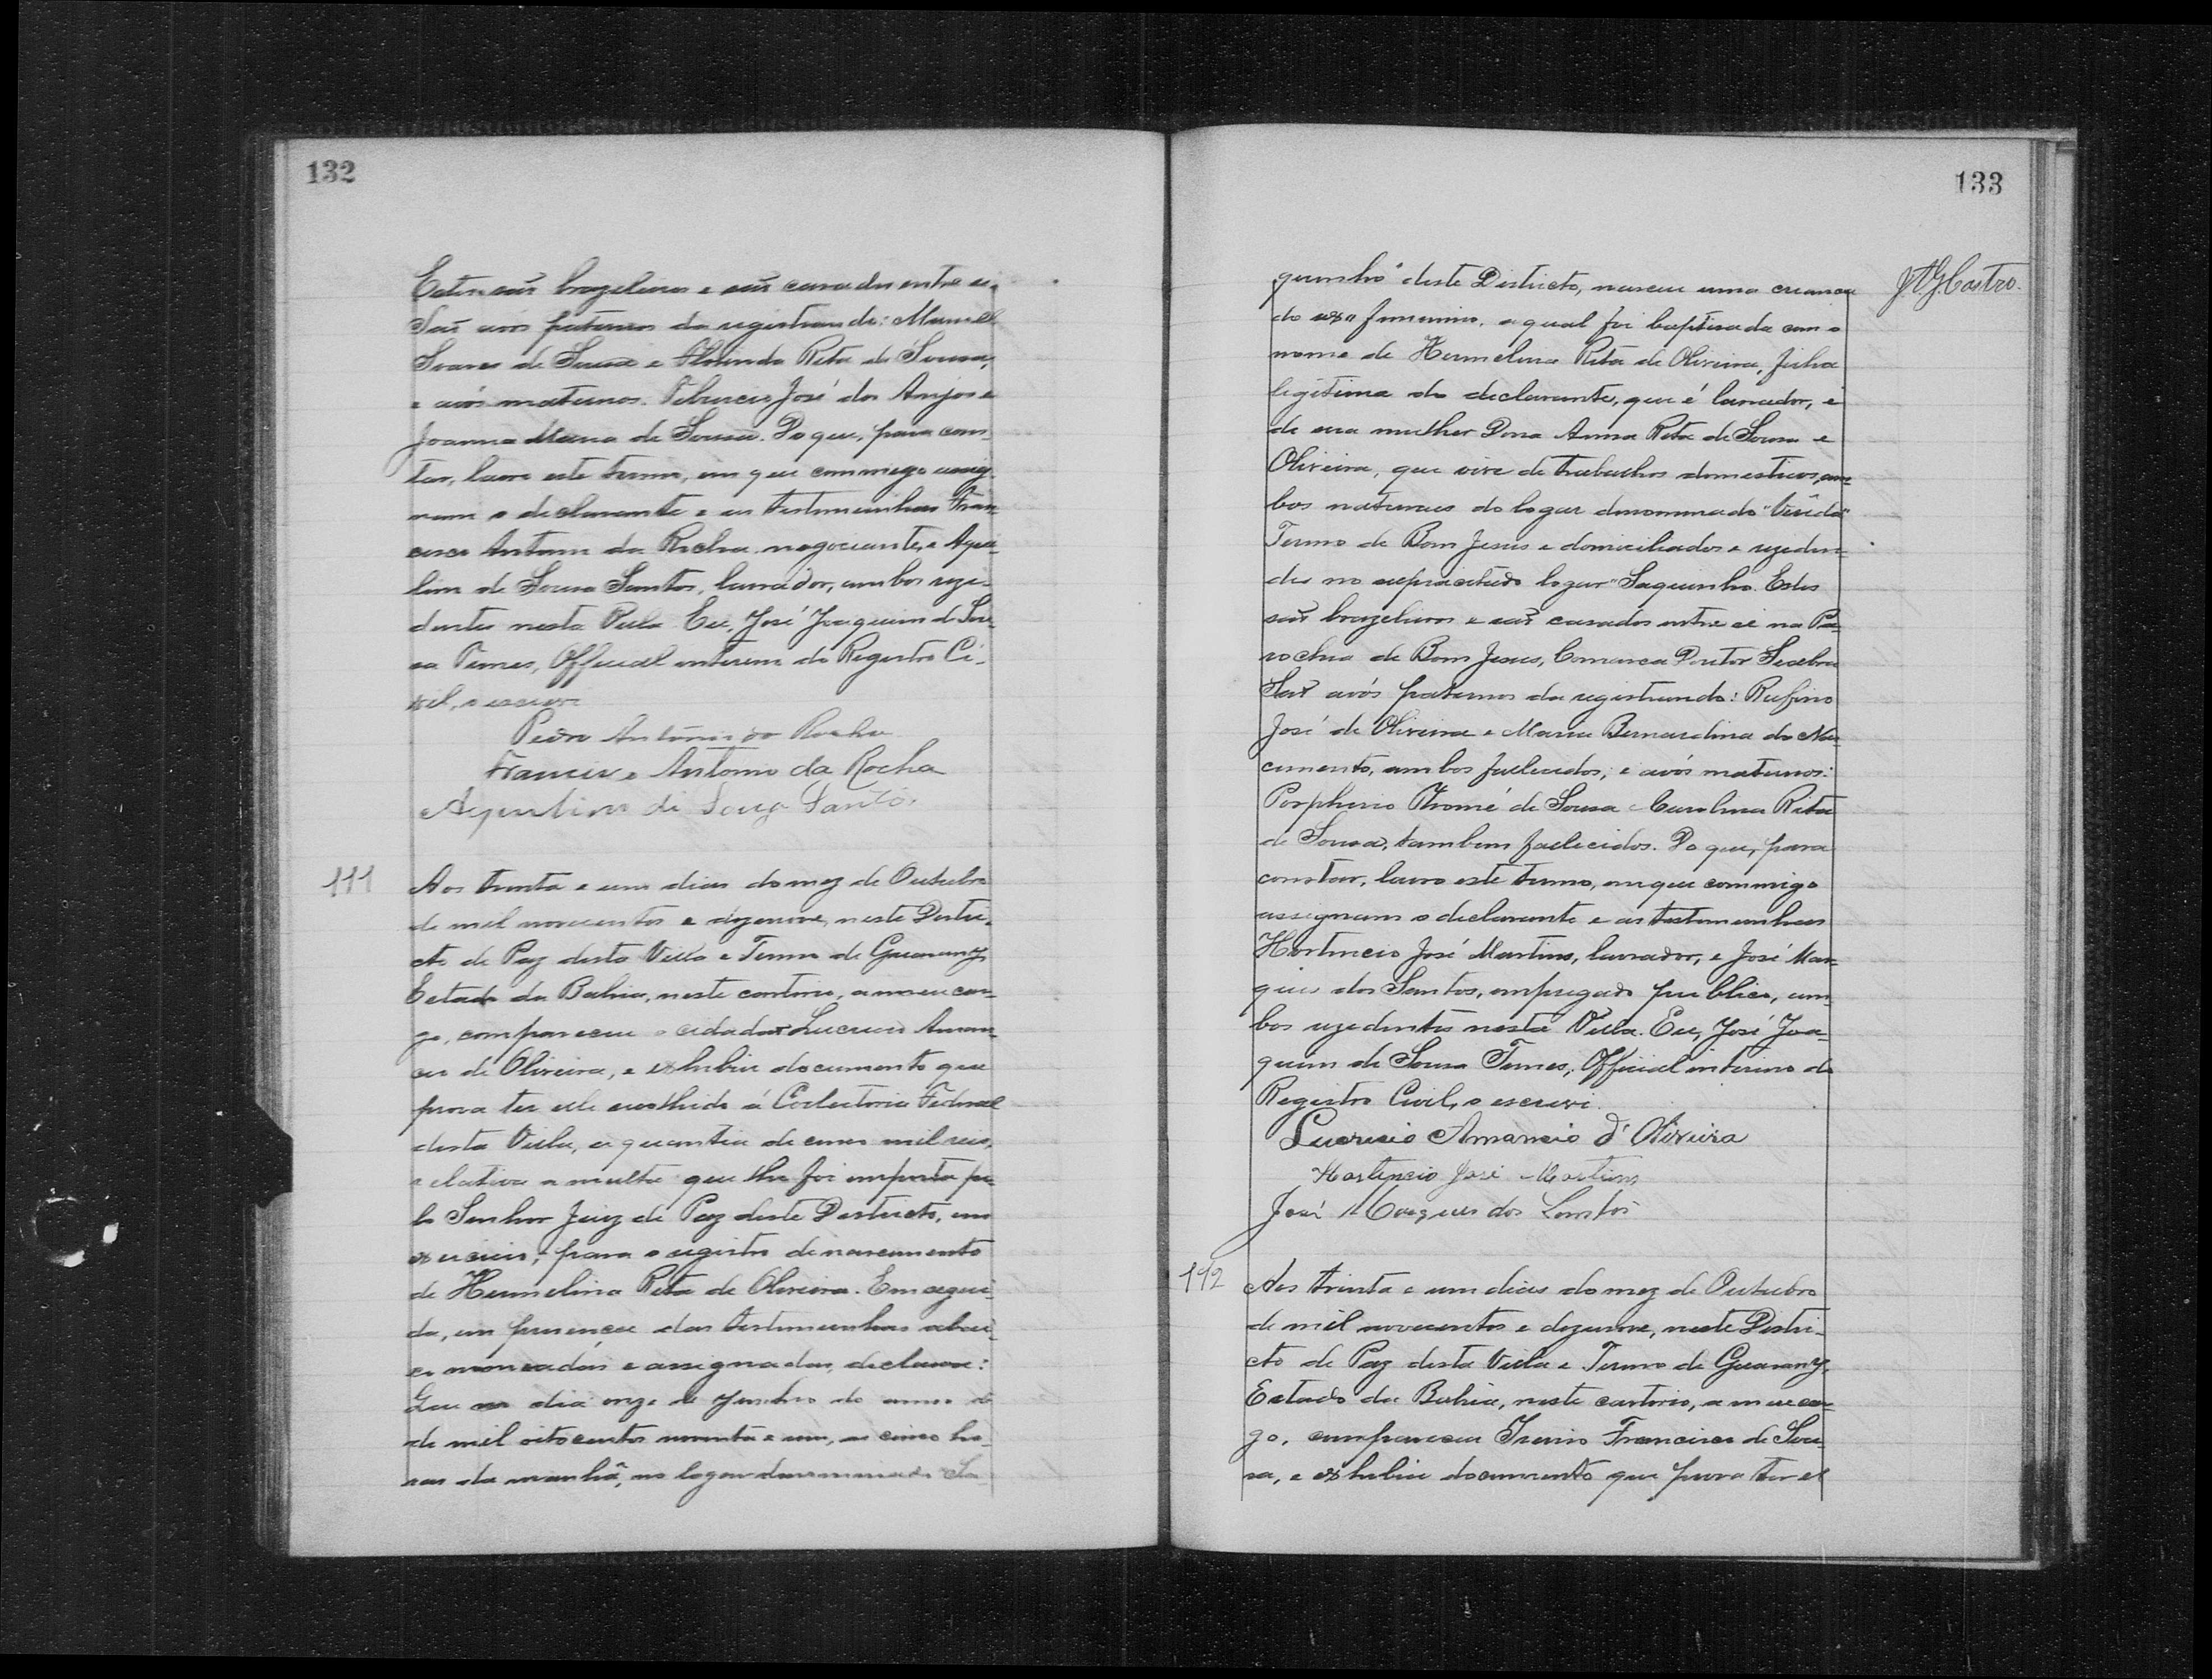 132
Estes são brazileiros e são casados entre si.
São avós paternos do registrando: Manoel
Soares de Sousa e Rita de Sousa,
e avós maternos: Tiburcio José dos Anjos e
Joanna Maria de Sousa. Do que, para cons-
tar, lavro este termo, em que commigo assig-
nam o declarante e as testemunhas Fran-
cisco Antonio da Rocha, negociante, e Aque-
lino de Sousa Santos, lavrador, ambos rezi-
dentes nesta Villa. Eu, José Joaquim de Sou-
sa Temes, Official interino do Registro Ci-
vil, o escrevi.
Pedro Antonio da Rocha
Francisco Antonio da Rocha
de Souza Santos
111
Aos trinta e um dias do mez de Outubro
de mil novecentos e dezenove, neste Distri-
cto de Paz desta Villa e Termo de Guarany,
Estado da Bahia, neste cartorio, a meu car-
go, compareceu o cidadão Lucrecio Aman-
cio de Oliveira, e exhibiu documento que
prova ter elle recolhido á Collectoria Federal
desta Villa, a quantia de cinco mil reis,
relativa a multa que lhe foi imposta pe-
lo Senhor Juiz de Paz deste Districto, em
exercicio, para o registro de nascimento
de Hermelina Rita de Oliveira. Em segui-
da, em presença das testemunhas abai-
xo nomeadas e assignadas, declarou:
Que no dia onze de Junho do anno
de mil oitocentos noventa e um, as cinco ho-
ras da manhã, no logar denominado "Sa-
133
quinho" deste Districto, nasceu uma creança
do sexo feminino, a qual foi baptisada com o
nome de Hermelina Rita de Oliveira, filha
legitima do declarante, que é lavrador, e
de sua mulher Dona Anna Rita de Sousa e
Oliveira, que vive de trabalhos domesticos, am-
bos naturaes do logar denominado
Termo de Bom Jesus e domiciliados e rezeden-
des no supracitado logar "Saquinho. Estes
são brazileiros e são casados entre si na Pa-
rochia de Bom Jesus, Comarca Doutor Seabra
São avós paternos da registrando: Rufino
José de Oliveira e Maria Bernardina do Nas-
cimento, ambos fallecidos; e avós maternos:
Porpherio Thomé de Sousa e Carolina Rita
de Sousa, tambem fallecidos. Do que, para
constar, lavro este termo, em que commigo
assegnam o declarante e as testemunhas
Hortencio José Martins, lavrador, e José Mar-
ques dos Santos, empregado publico, am-
bos rezedentes nesta Villa. Eu, José Joa-
quim de Sousa Temes, Official interino do
Registro Civil, o escrevi.
Lucrecio Amancio d'Oliveira
Hortencio José Martins
José Marques dos Santos
J A G Castro.
112
Aos trinta e um dias do mez de Outubro
de mil novecentos e dezenove, neste Distri-
cto de Paz desta Villa e Termo de Guarany,
Estado da Bahia, neste cartorio, a meu car-
go, compareceu Francisco de Sou-
sa, e exhibiu documento que prova ter el